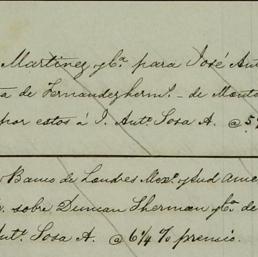 Martinez y Ca. para José Ant
ta de Fernandez herms. - de Monto
por estos á J. Anto. Sosa A. @ 5
Banco de Londres Mexo. y Sud Ame
sobre Duncan Sherman y Ca. de
Anto. Sosa A. @ 6 1/4 % premio.